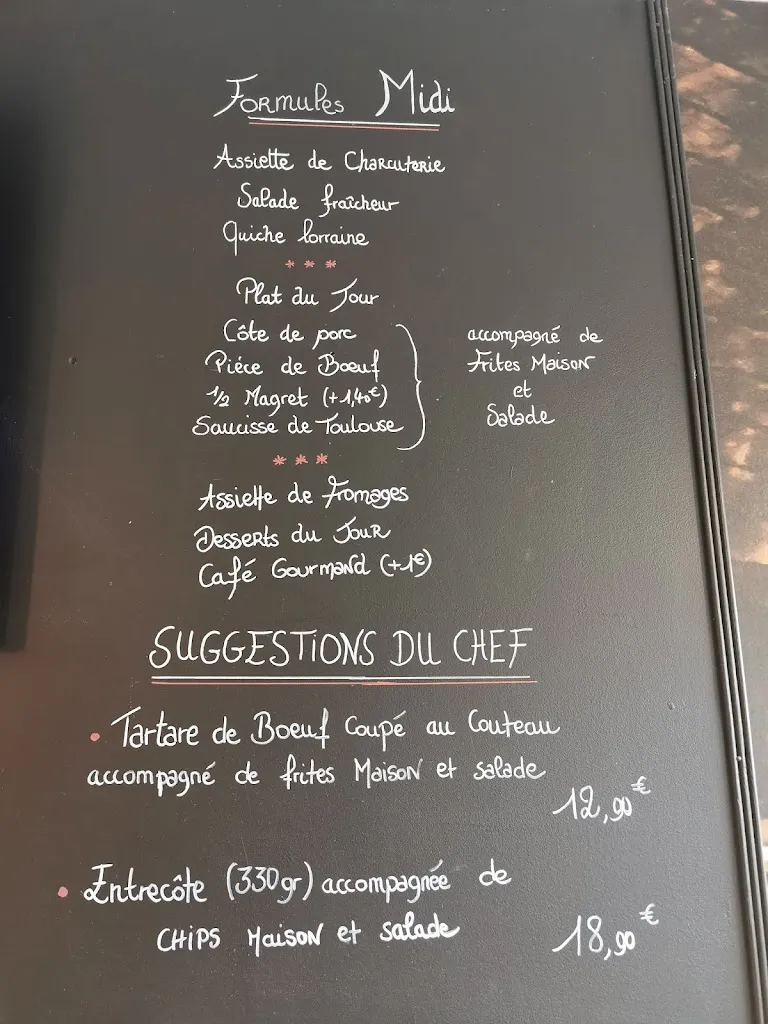 Formules Midi
Assiette de Charcuterie
Salade fraîcheur
Quiche lorraine
***
Plat du Jour
Côte de porc
Pièce de Boeuf
1/2 Magret (+1,40€)
Saucisse de Toulouse
accompagné de
Frites Maison
et
Salade
***
Assiette de Fromages
Desserts du Jour
Café Gourmand (+1€)
SUGGESTIONS DU CHEF
• Tartare de Boeuf Coupé au Couteau
accompagné de frites Maison et salade
12,90€
• Entrecôte (330gr) accompagnée de
CHIPS Maison et salade
18,90€